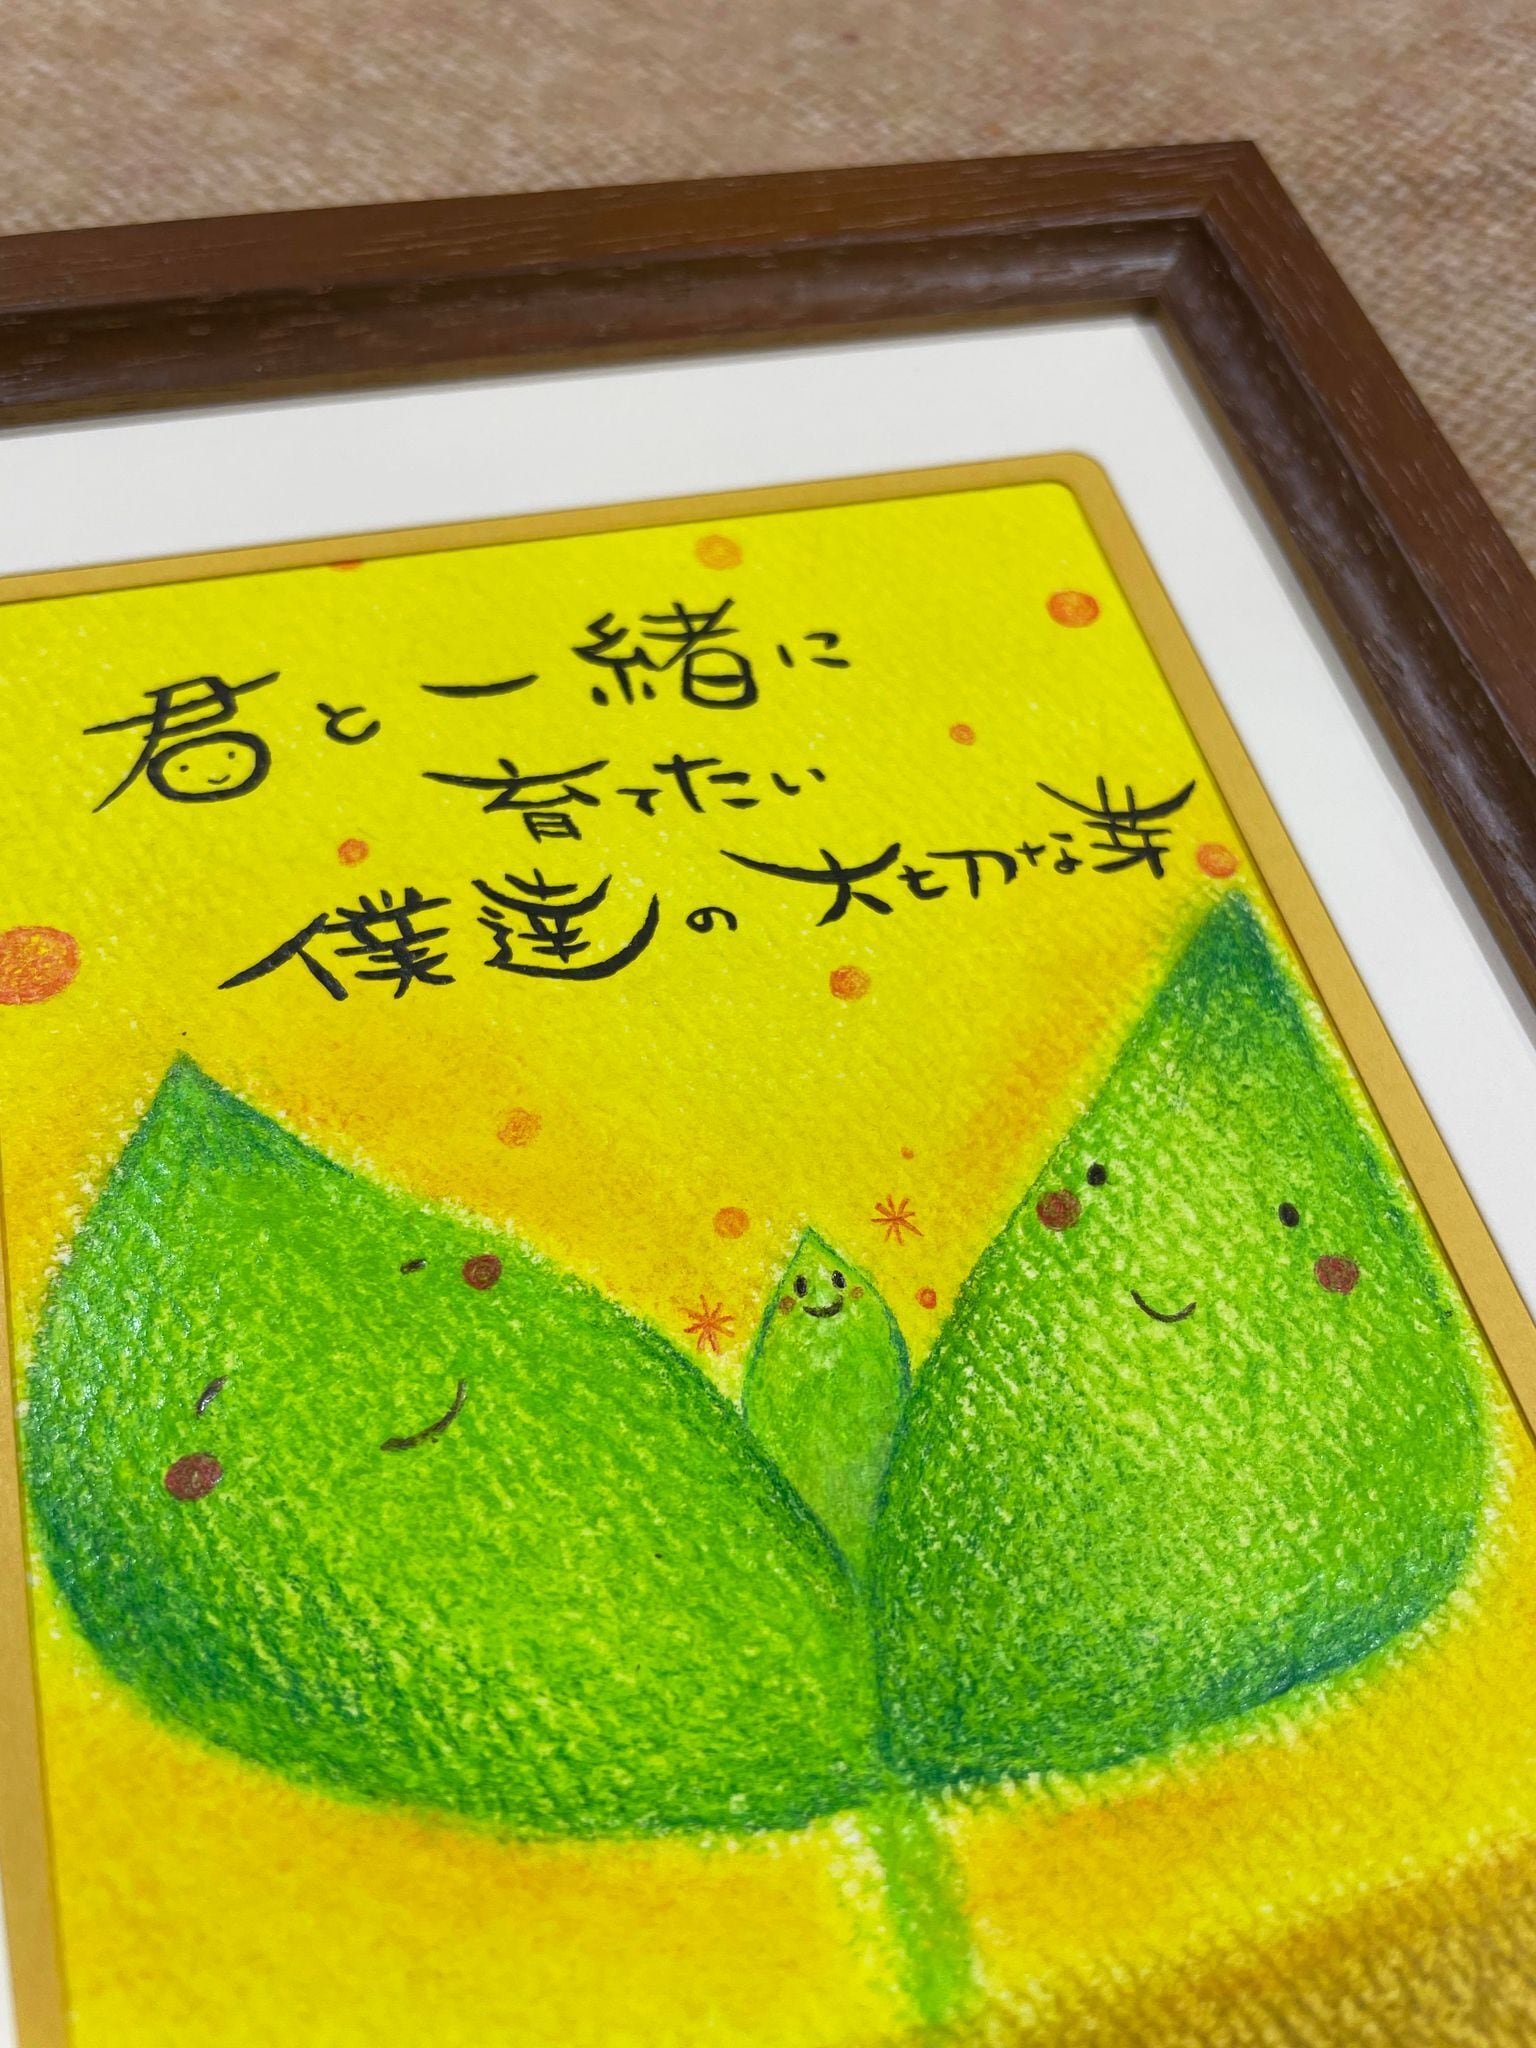 君と一緒に
育てたい
僕達の大切な芽